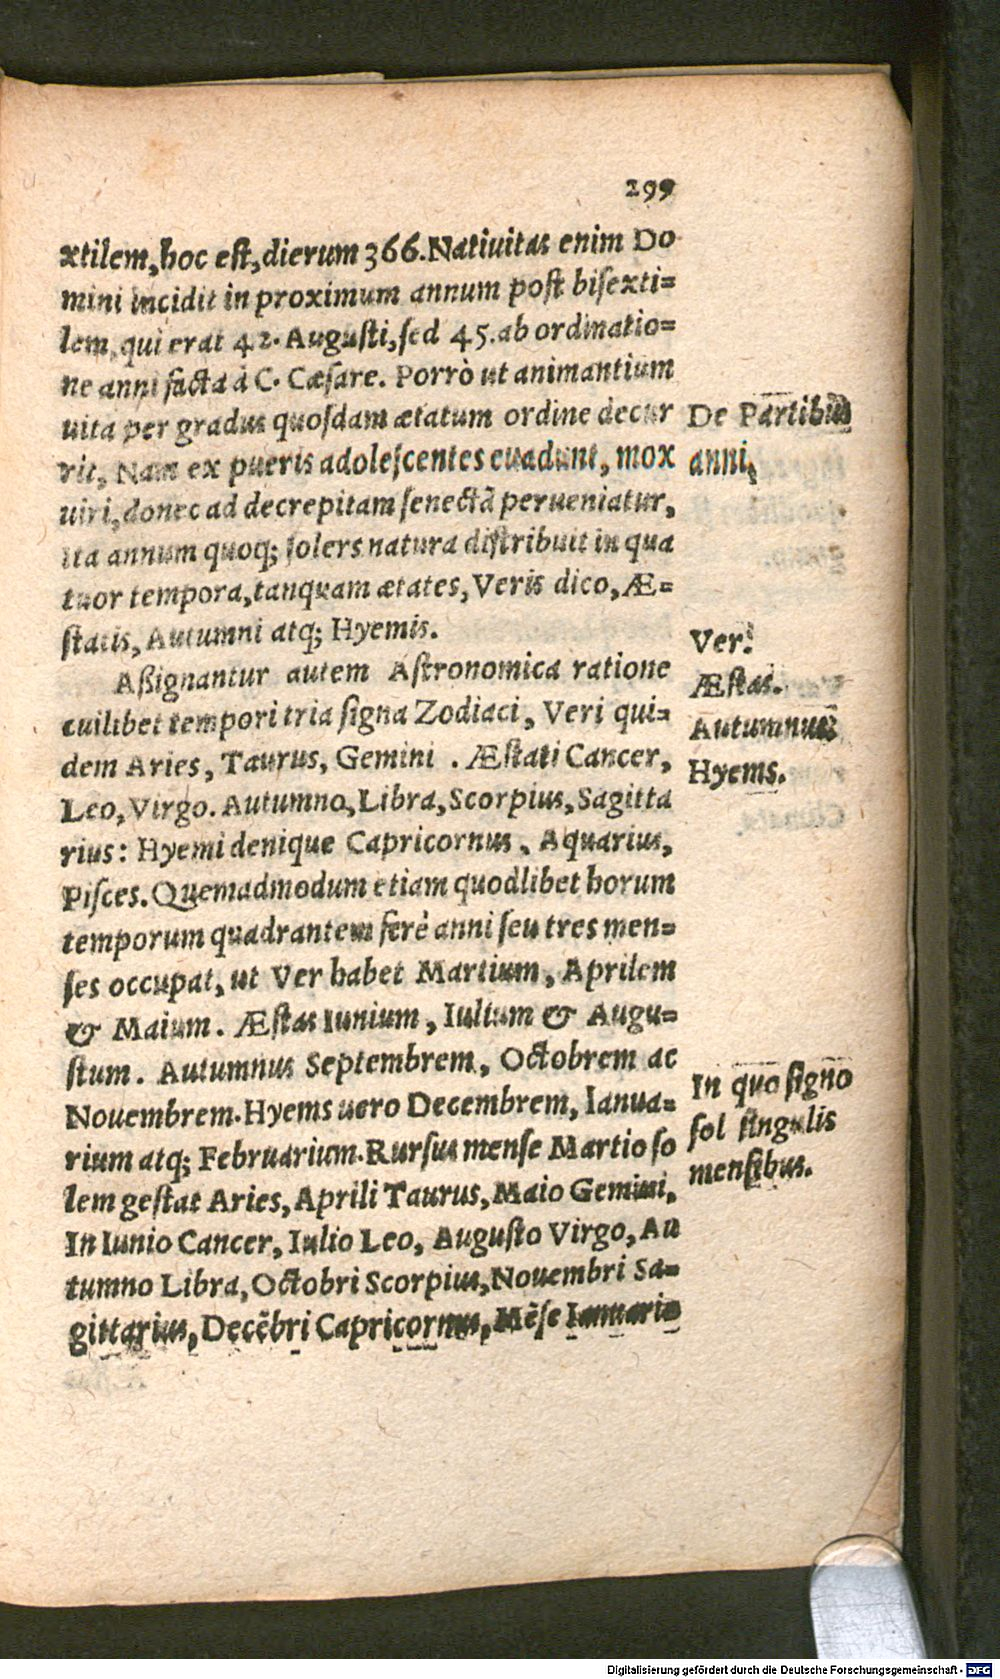 299
xtilem, hoc est, dierum 366. Natiuitas enim Do
mini incidit in proximum annum post bisexti=
lem, qui erat 42. Augusti, sed 45. ab ordinatio=
ne anni facta à C. Cæsare. Porrò ut animantium
uita per gradus quosdam ætatum ordine decur
rit, Nam ex pueris adolescentes euadunt, mox
uiri, donec ad decrepitam senectã perueniatur,
ita annum quoq; solers natura distribuit in qua
tuor tempora, tanquam ætates, Veris dico, Æ=
statis, Autumni atq; Hyemis.
Aßignantur autem Astronomica ratione
cuilibet tempori tria signa Zodiaci, Veri qui=
dem Aries, Taurus, Gemini . Æstati Cancer,
Leo, Virgo. Autumno, Libra, Scorpius, Sagitta
rius: Hyemi denique Capricornus, Aquarius,
Pisces. Quemadmodum etiam quodlibet horum
temporum quadrantem ferè anni seu tres men=
ses occupat, ut Ver habet Martium, Aprilem
& Maium. Æstas Iunium, Iulium & Augu=
stum. Autumnus Septembrem, Octobrem ac
Nouembrem. Hyems uero Decembrem, Ianua=
rium atq; Februarium. Rursus mense Martio so
lem gestat Aries, Aprili Taurus, Maio Gemini,
In Iunio Cancer, Iulio Leo, Augusto Virgo, Au
tumno Libra, Octobri Scorpius, Nouembri Sa=
gittarius, Decẽbri Capricornus, Mẽse Ianuario
De Partibus
anni.
Ver.
Æstas.
Autumnus
Hyems.
In quo signo
sol singulis
mensibus.
Digitalisierung gefördert durch die Deutsche Forschungsgemeinschaft - DFG